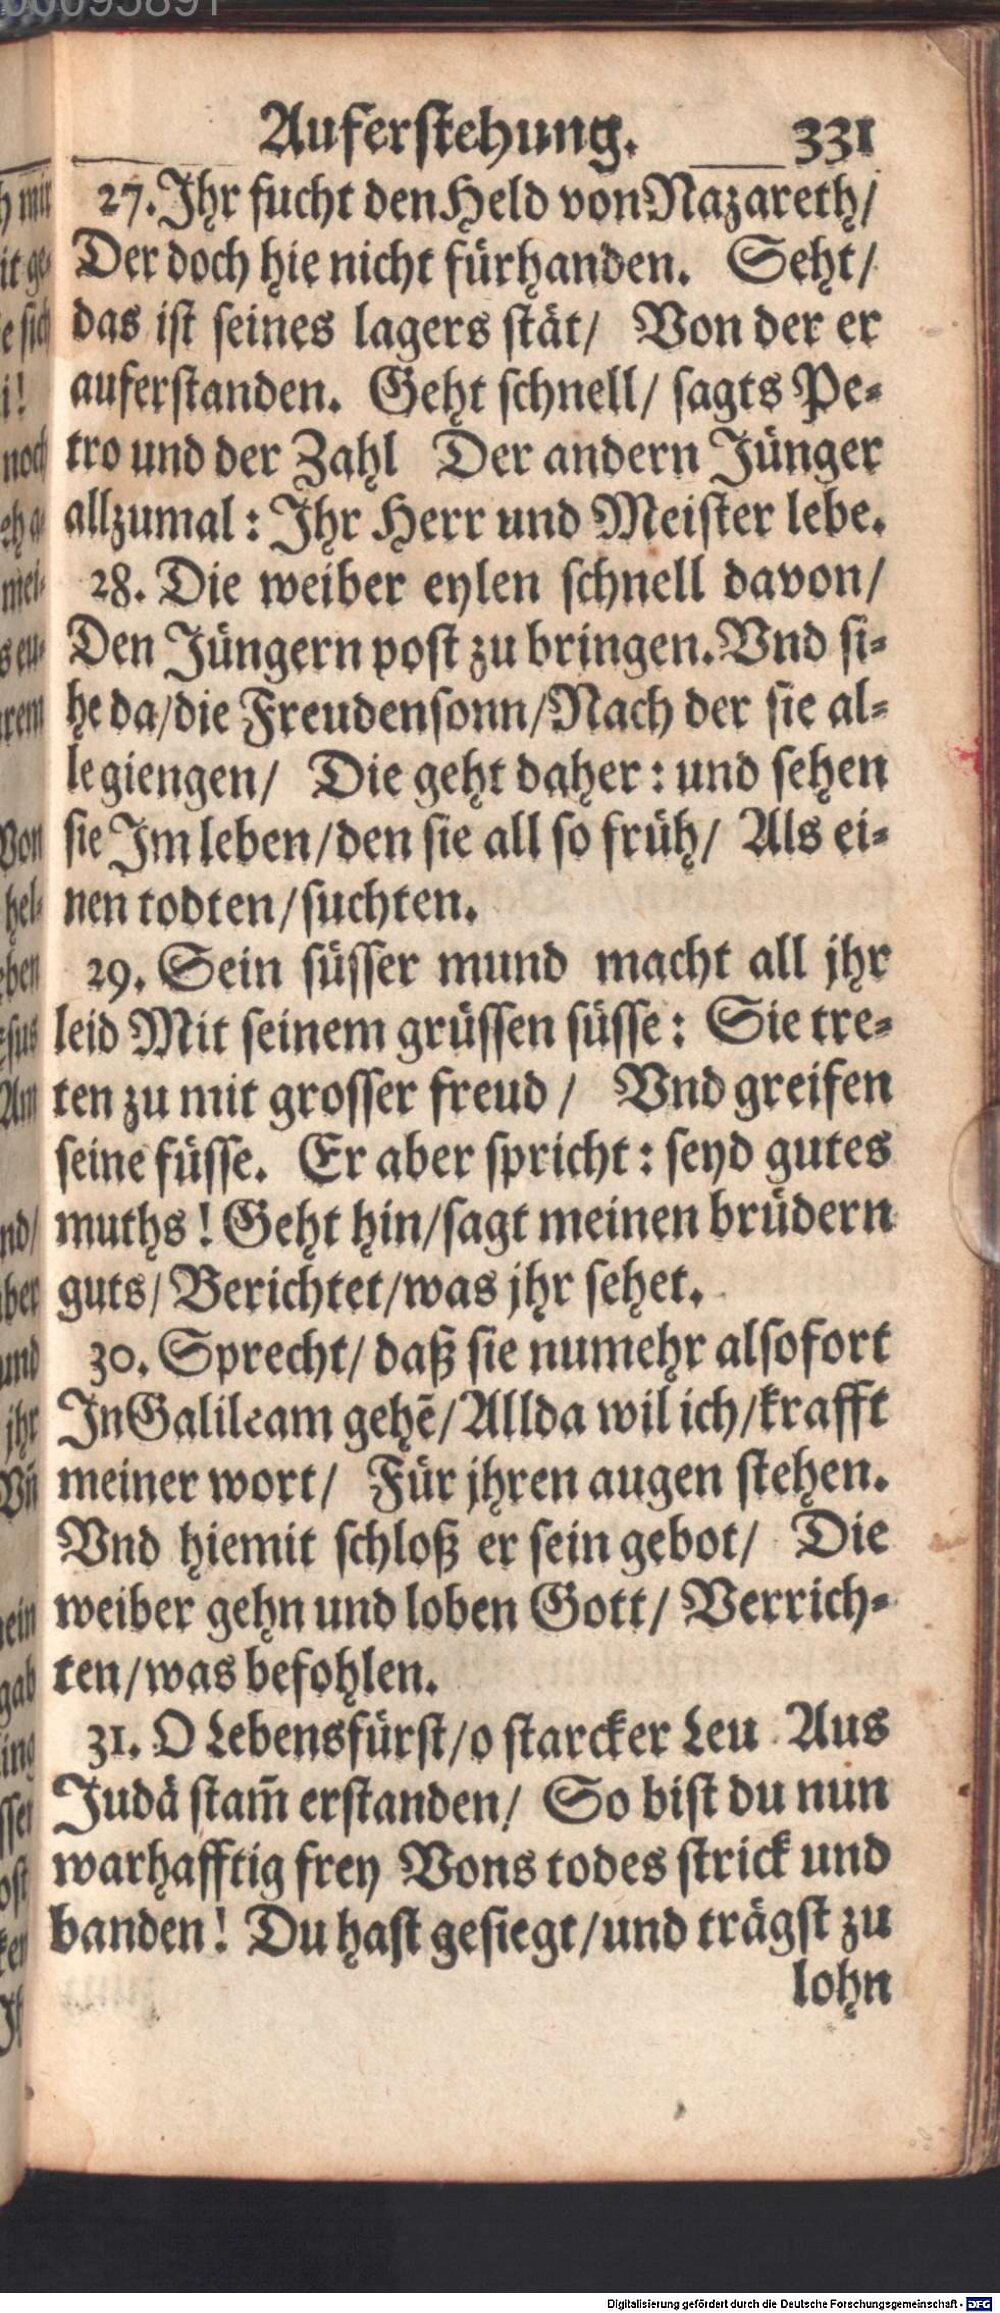 Auferstehung. 331
27. Ihr sucht den Held von Nazareth/
Der doch hie nicht fürhanden. Seht/
das ist seines lagers stät/ Von der er
auferstanden. Geht schnell/ sagts Pe-
tro und der Zahl Der andern Jünger
allzumal: Ihr Herr und Meister lebe.
28. Die weiber eylen schnell davon/
Den Jüngern post zu bringen. Vnd si-
he da/die Freudensonn/Nach der sie al-
le giengen/ Die geht daher: und sehen
sie Im leben/den sie all so früh/ Als ei-
nen todten/suchten.
29. Sein süsser mund macht all jhr
leid Mit seinem grüssen süsse: Sie tre-
ten zu mit grosser freud/ Vnd greifen
seine füsse. Er aber spricht: seyd gutes
muths! Geht hin/sagt meinen brüdern
guts/ Berichtet/was jhr sehet.
30. Sprecht/ daß sie numehr alsofort
In Galileam gehē/Allda wil ich/krafft
meiner wort/ Für jhren augen stehen.
Vnd hiemit schloß er sein gebot/ Die
weiber gehn und loben Gott/ Verrich-
ten/was befohlen.
31. O Lebensfürst/o starcker Leu Aus
Judä stam̄ erstanden/ So bist du nun
warhafftig frey Vons todes strick und
banden! Du hast gesiegt/und trägst zu
lohn
Digitalisierung gefördert durch die Deutsche Forschungsgemeinschaft - DFG